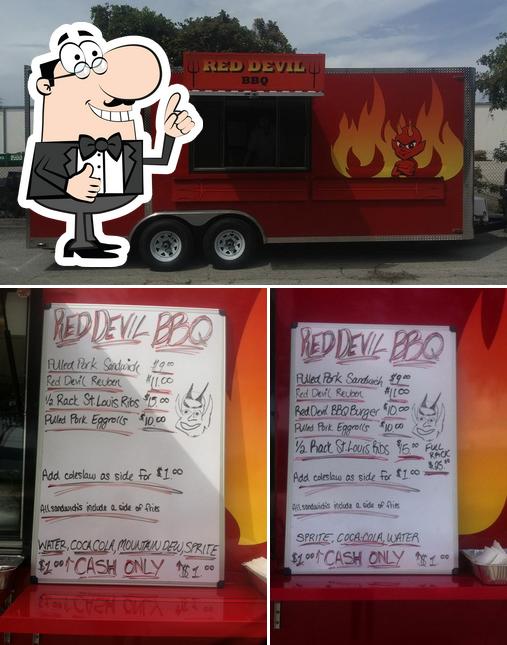 RED DEVIL
BBQ
RED DEVIL BBQ
Pulled Pork Sandwich $9.00
Red Devil Reuben $11.00
1/2 Rack St. Louis Ribs $15.00
Pulled Pork Eggrolls $10.00
Add coleslaw as side for $1.00
All sandwich's include a side of fries
WATER, COCA COLA, MOUNTAIN DEW, SPRITE
$1.00 ↑ CASH ONLY ↑ $1.00
RED DEVIL BBQ
Pulled Pork Sandwich $9.00
Red Devil Reuben $11.00
Red Devil BBQ Burger $10.00
Pulled Pork Eggrolls $10.00
1/2 Rack St. Louis Ribs $15.00 FULL RACK $25.00
Add coleslaw as side for $1.00
All sandwich's include a side of fries
SPRITE, COCA-COLA, WATER
$1.00 ↑ CASH ONLY ↑ $1.00